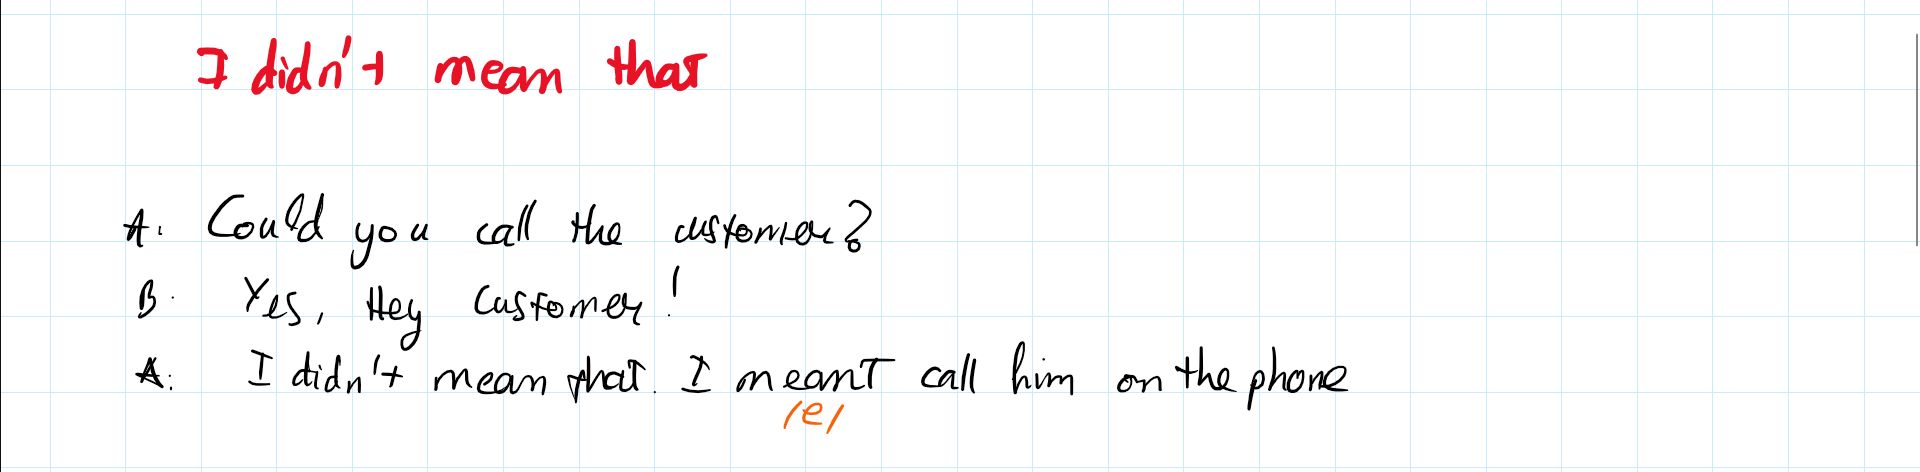 I didn't mean that
A: Could you call the customer?
B: Yes, Hey Customer!
A: I didn't mean that. I meant call him on the phone
/e/